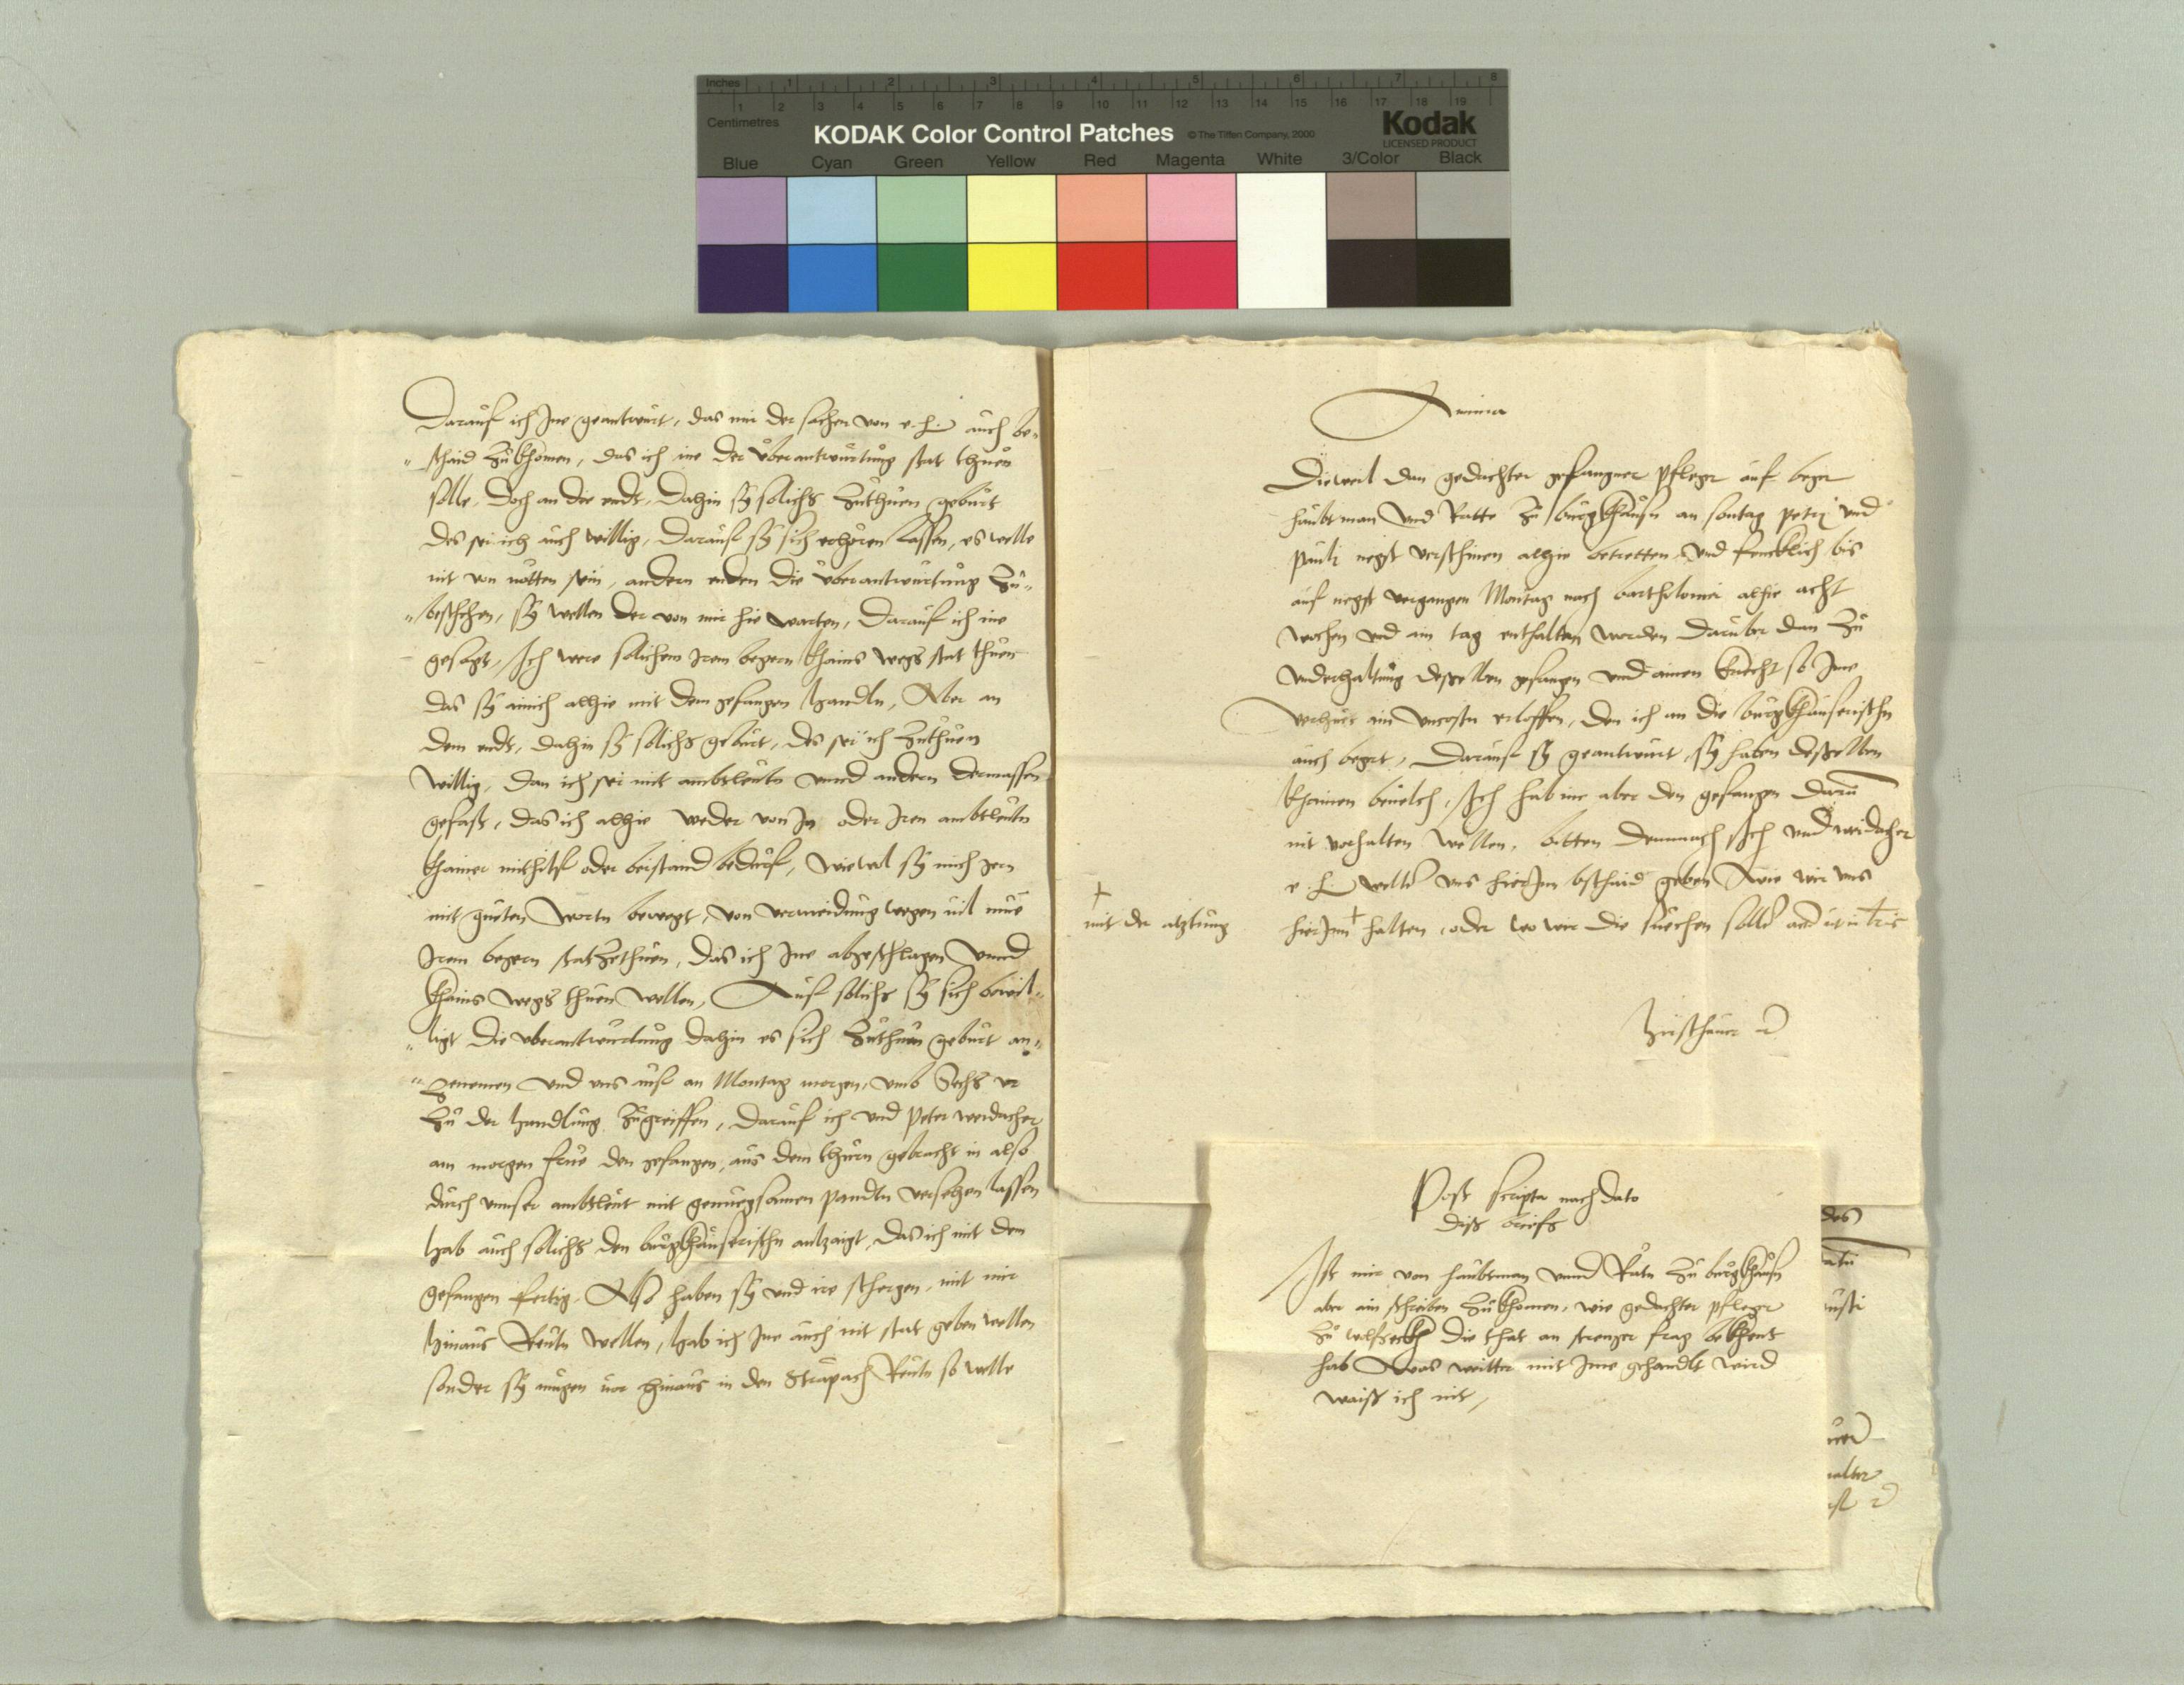 Inches 1 2 3 4 5 6 7 8
1 2 3 4 5 6 7 8 9 10 11 12 13 14 15 16 17 18 19
Centimetres
KODAK Color Control Patches © The Tiffen Company, 2000 Kodak
LICENSED PRODUCT
Blue Cyan Green Yellow Red Magenta White 3/Color Black
Darauf ich Ine geantwurt, das mir der sachen von e. h. auch be-
schaid zukhomen, das ich ine der uberantwurtung stat thuen
solle, doch an die endt, dahin sy solichs zuthuen geburt
des sei ich auch willig, darauf sy sich erhoren lassen, es welle
nit von notten sein, andern enden die uberantwurtung zu-
beschehen, sy wellen der von mir hie warten, darauf ich ine
gesagt, Ich were solichem irem begern khains wegs stat thuen
das sy ainich alhie mit dem gefangen handln, Aber an
dem endt, dahin sy solichs geburt, des sei ich zuthuen
willig, dan ich sei mit ambtleutn unnd andern dermassen
gefast, das ich alhie weder von In oder Iren ambtleutn
khainer mithilf oder beistand bedurf, wiewol sy mich gern
mit gueten wortn bewegt, von vermeidung wegen vil mue
Irem begern stat zethuen, das ich Ine abgeschlagen unnd
khains wegs thuen wellen, Auf solichs sy sich bewil-
ligt die uberantwurtung dahin es sich zuthuen geburt an-
zenemen und uns auf an Montag morgen, umb Sechs ur
zu der handlung zugreiffen, darauf ich und Peter weidacher
am morgen frue den gefangen, aus dem thurn gebracht in also
durch unnser ambtleut mit genuegsamen pandtn versehen lassen
hab auch solichs den burgkhauserischn antzaigt, das ich mit dem
gefangen fertig, Also haben sy und ire schergen, mit mir
hinaus Reitn wellen, hab ich Ine auch nit stat geben wellen
sonder sy mugen vor hinaus in den Strapach Reitn so welle
Dieweil dan gedachter gefangner pfleger auf beger
haubtman und Rätte zu burgkhausn an sontag petri und
pauli negst verschinen alhie betretten und fencklich bis
auf negst vergangen Montag nach bartholomei alhie acht
wochen und ain tag enthalten worden daruber dan zu
underhaltung desselben gefangen und ainen knecht so Ine
ain uncostn erloffen, den ich an die burgkhauserischn
auch begert, darauf sy geantwurt, sy haben desselben
khainen bevelch, Ich hab ine aber den gefangen darumb
nit vorhalten wellen, bitten demnach Ich und weidacher
e. h. welle uns hierjnn bschaid geben wie wir uns
hierjnn + halten, oder wo wir die suechen solln
+
mit der atztung
Post scripta nach dato
diss briefs
Ist mir von haubtman unnd Rätn zu burgkhausn
aber ain schreiben zukhomen, wie gedachter pfleger
zu wolfsecckh die that an strenger frag bekhent
hab Was weitter mit Ime gehandlt wird
waiss ich nit,
des